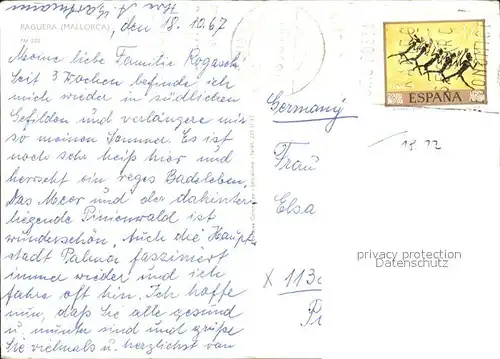 PAGUERA (MALLORCA)
den 18.10.67
Meine liebe Familie Rogasch!
Seit 3 Wochen befinde ich
mich wieder in südlichen
Gefilden und verlängere mir
so meinen Sommer. Es ist
noch sehr heiß hier und
herrscht ein reges Badeleben.
Das Meer und der dahinter
liegende Pinienwald ist
wunderschön. Auch die Haupt
stadt Palma fasziniert
immer wieder und ich
fahre oft hin. Ich hoffe
nun, daß Sie alle gesund
u. munter sind und grüße
Sie vielmals u. herzlichst von
ESPAÑA
Germany
Frau
Elsa
privacy protection
Datenschutz